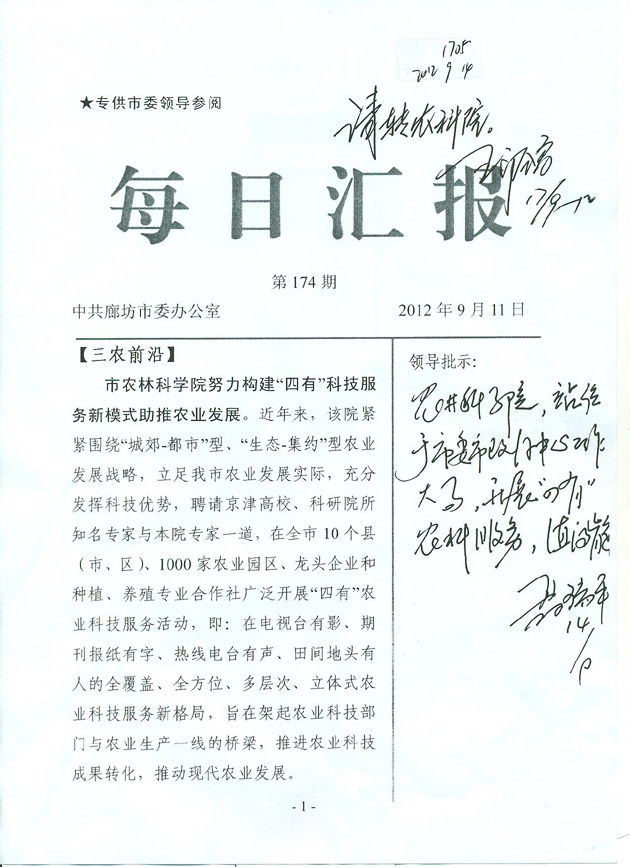 1705
2012 9 14
★专供市委领导参阅
请转农科院。
每日汇报
第 174 期
中共廊坊市委办公室
2012 年 9 月 11 日
【三农前沿】
市农林科学院努力构建“四有”科技服
务新模式助推农业发展。近年来，该院紧
紧围绕“城郊-都市”型、“生态-集约”型农业
发展战略，立足我市农业发展实际，充分
发挥科技优势，聘请京津高校、科研院所
知名专家与本院专家一道，在全市 10 个县
（市、区）、1000 家农业园区、龙头企业和
种植、养殖专业合作社广泛开展“四有”农
业科技服务活动，即：在电视台有影、期
刊报纸有字、热线电台有声、田间地头有
人的全覆盖、全方位、多层次、立体式农
业科技服务新格局，旨在架起农业科技部
门与农业生产一线的桥梁，推进农业科技
成果转化，推动现代农业发展。
领导批示：
农林科学院，站位
于市委市政府中心工作
大局，开展“四有”
农科服务，值得
14/
- 1 -